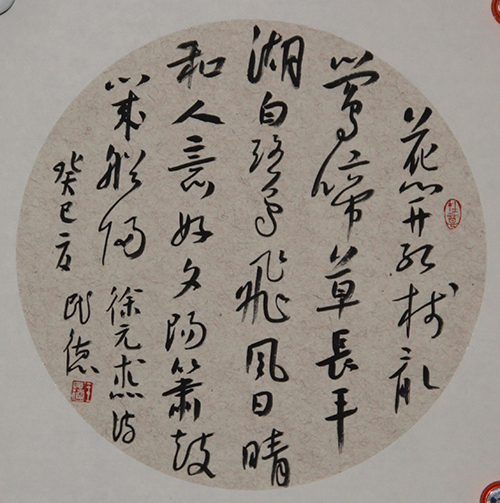 花開紅樹乱
鶯啼草長平
湖白鷺飛風日晴
和人意好夕陽簫鼓
幾船歸 徐元杰詩
癸巳夏 民德